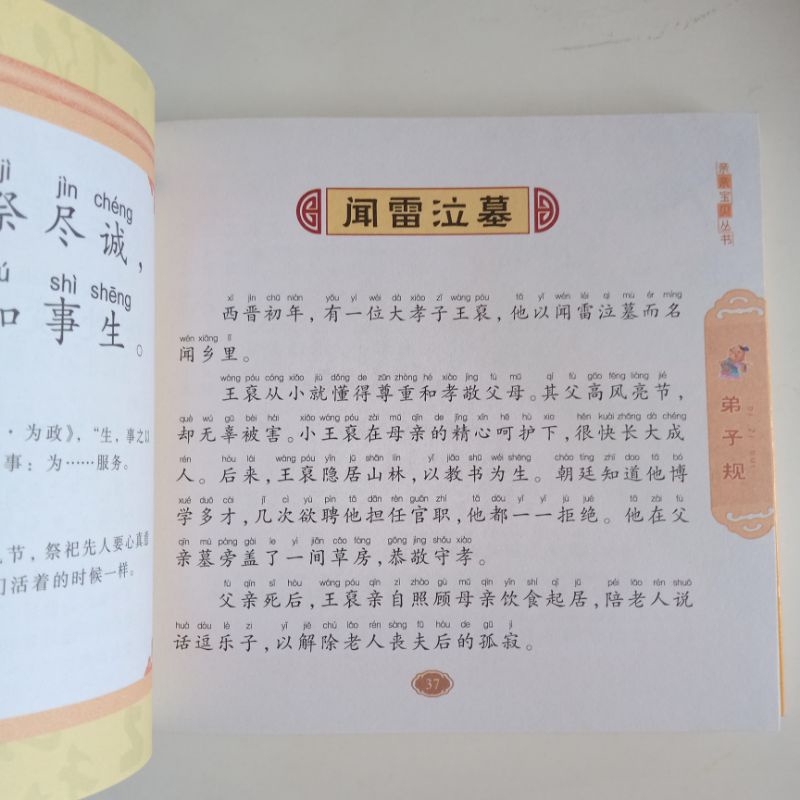 jì jìn chéng
祭尽诚，
shì shēng
如事生。
·为政》，“生，事之以
事：为……服务。
节，祭祀先人要心真意
们活着的时候一样。
闻雷泣墓
xī jìn chū nián yǒu yí wèi dà xiào zǐ wáng póu tā yǐ wén léi qì mù ér míng
西晋初年，有一位大孝子王裒，他以闻雷泣墓而名
wén xiāng lǐ
闻乡里。
wáng póu cóng xiǎo jiù dǒng de zūn zhòng hé xiào jìng fù mǔ qí fù gāo fēng liàng jié
王裒从小就懂得尊重和孝敬父母。其父高风亮节，
què wú gū bèi hài xiǎo wáng póu zài mǔ qīn de jīng xīn hē hù xia hěn kuài zhǎng dà chéng
却无辜被害。小王裒在母亲的精心呵护下，很快长大成
rén hòu lái wáng póu yǐn jū shān lín yǐ jiāo shū wéi shēng cháo tíng zhī dao tā bó
人。后来，王裒隐居山林，以教书为生。朝廷知道他博
xué duō cái jǐ cì yù pìn tā dān rèn guān zhí tā dōu yī yī jù jué tā zài fù
学多才，几次欲聘他担任官职，他都一一拒绝。他在父
qīn mù páng gài le yì jiān cǎo fáng gōng jìng shǒu xiào
亲墓旁盖了一间草房，恭敬守孝。
fù qīn sǐ hòu wáng póu qīn zì zhào gù mǔ qīn yǐn shí qǐ jū péi lǎo rén shuō
父亲死后，王裒亲自照顾母亲饮食起居，陪老人说
huà dòu lè zi yǐ jiě chú lǎo rén sàng fū hòu de gū jì
话逗乐子，以解除老人丧夫后的孤寂。
37
亲亲宝贝丛书
弟子规
dì zǐ guī